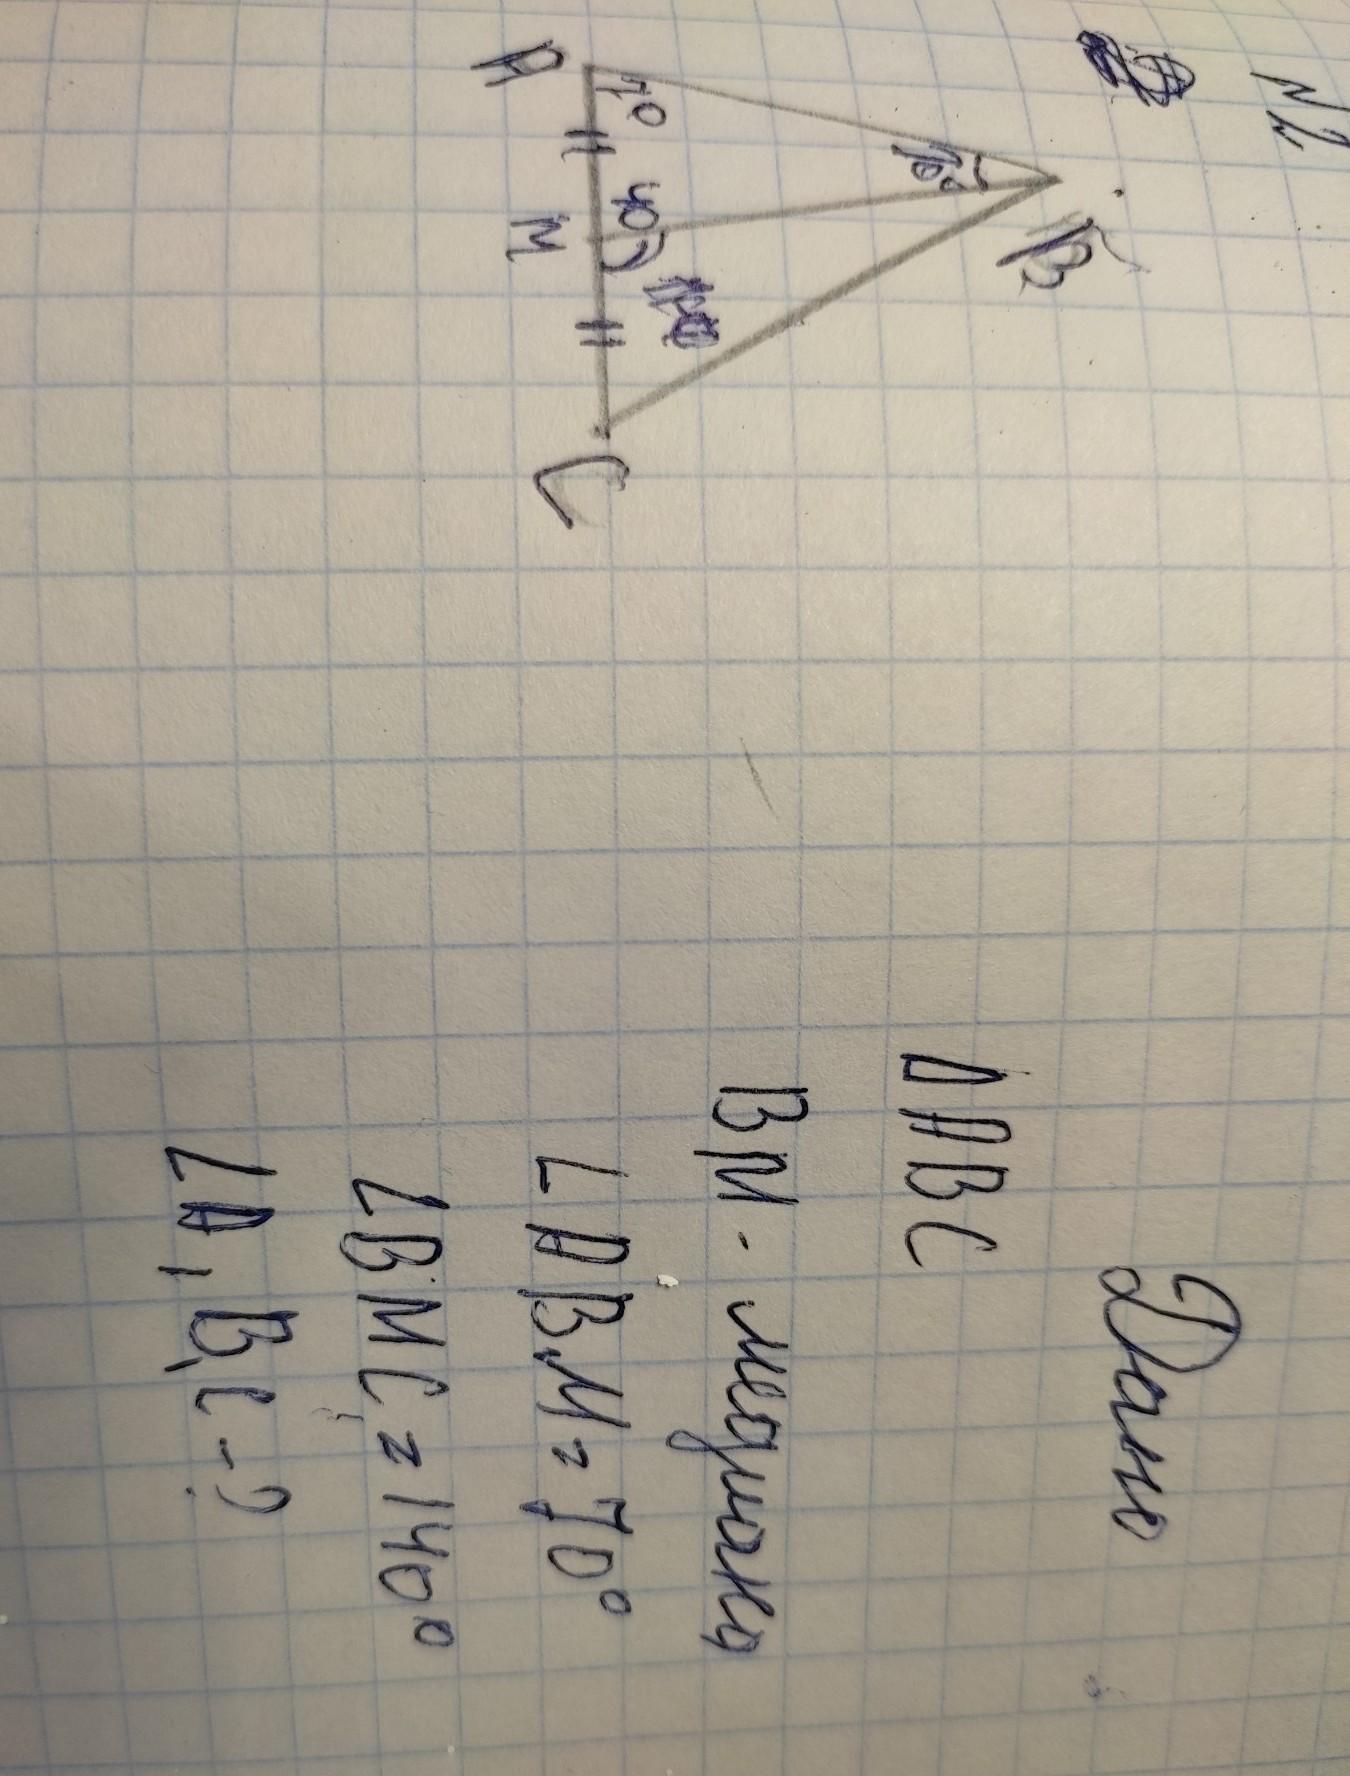 N2
B
70°
A
70
40
140
M
C
Дано
ΔABC
BM - медиана
∠ABM = 70°
∠BMC = 140°
∠A, B, C - ?